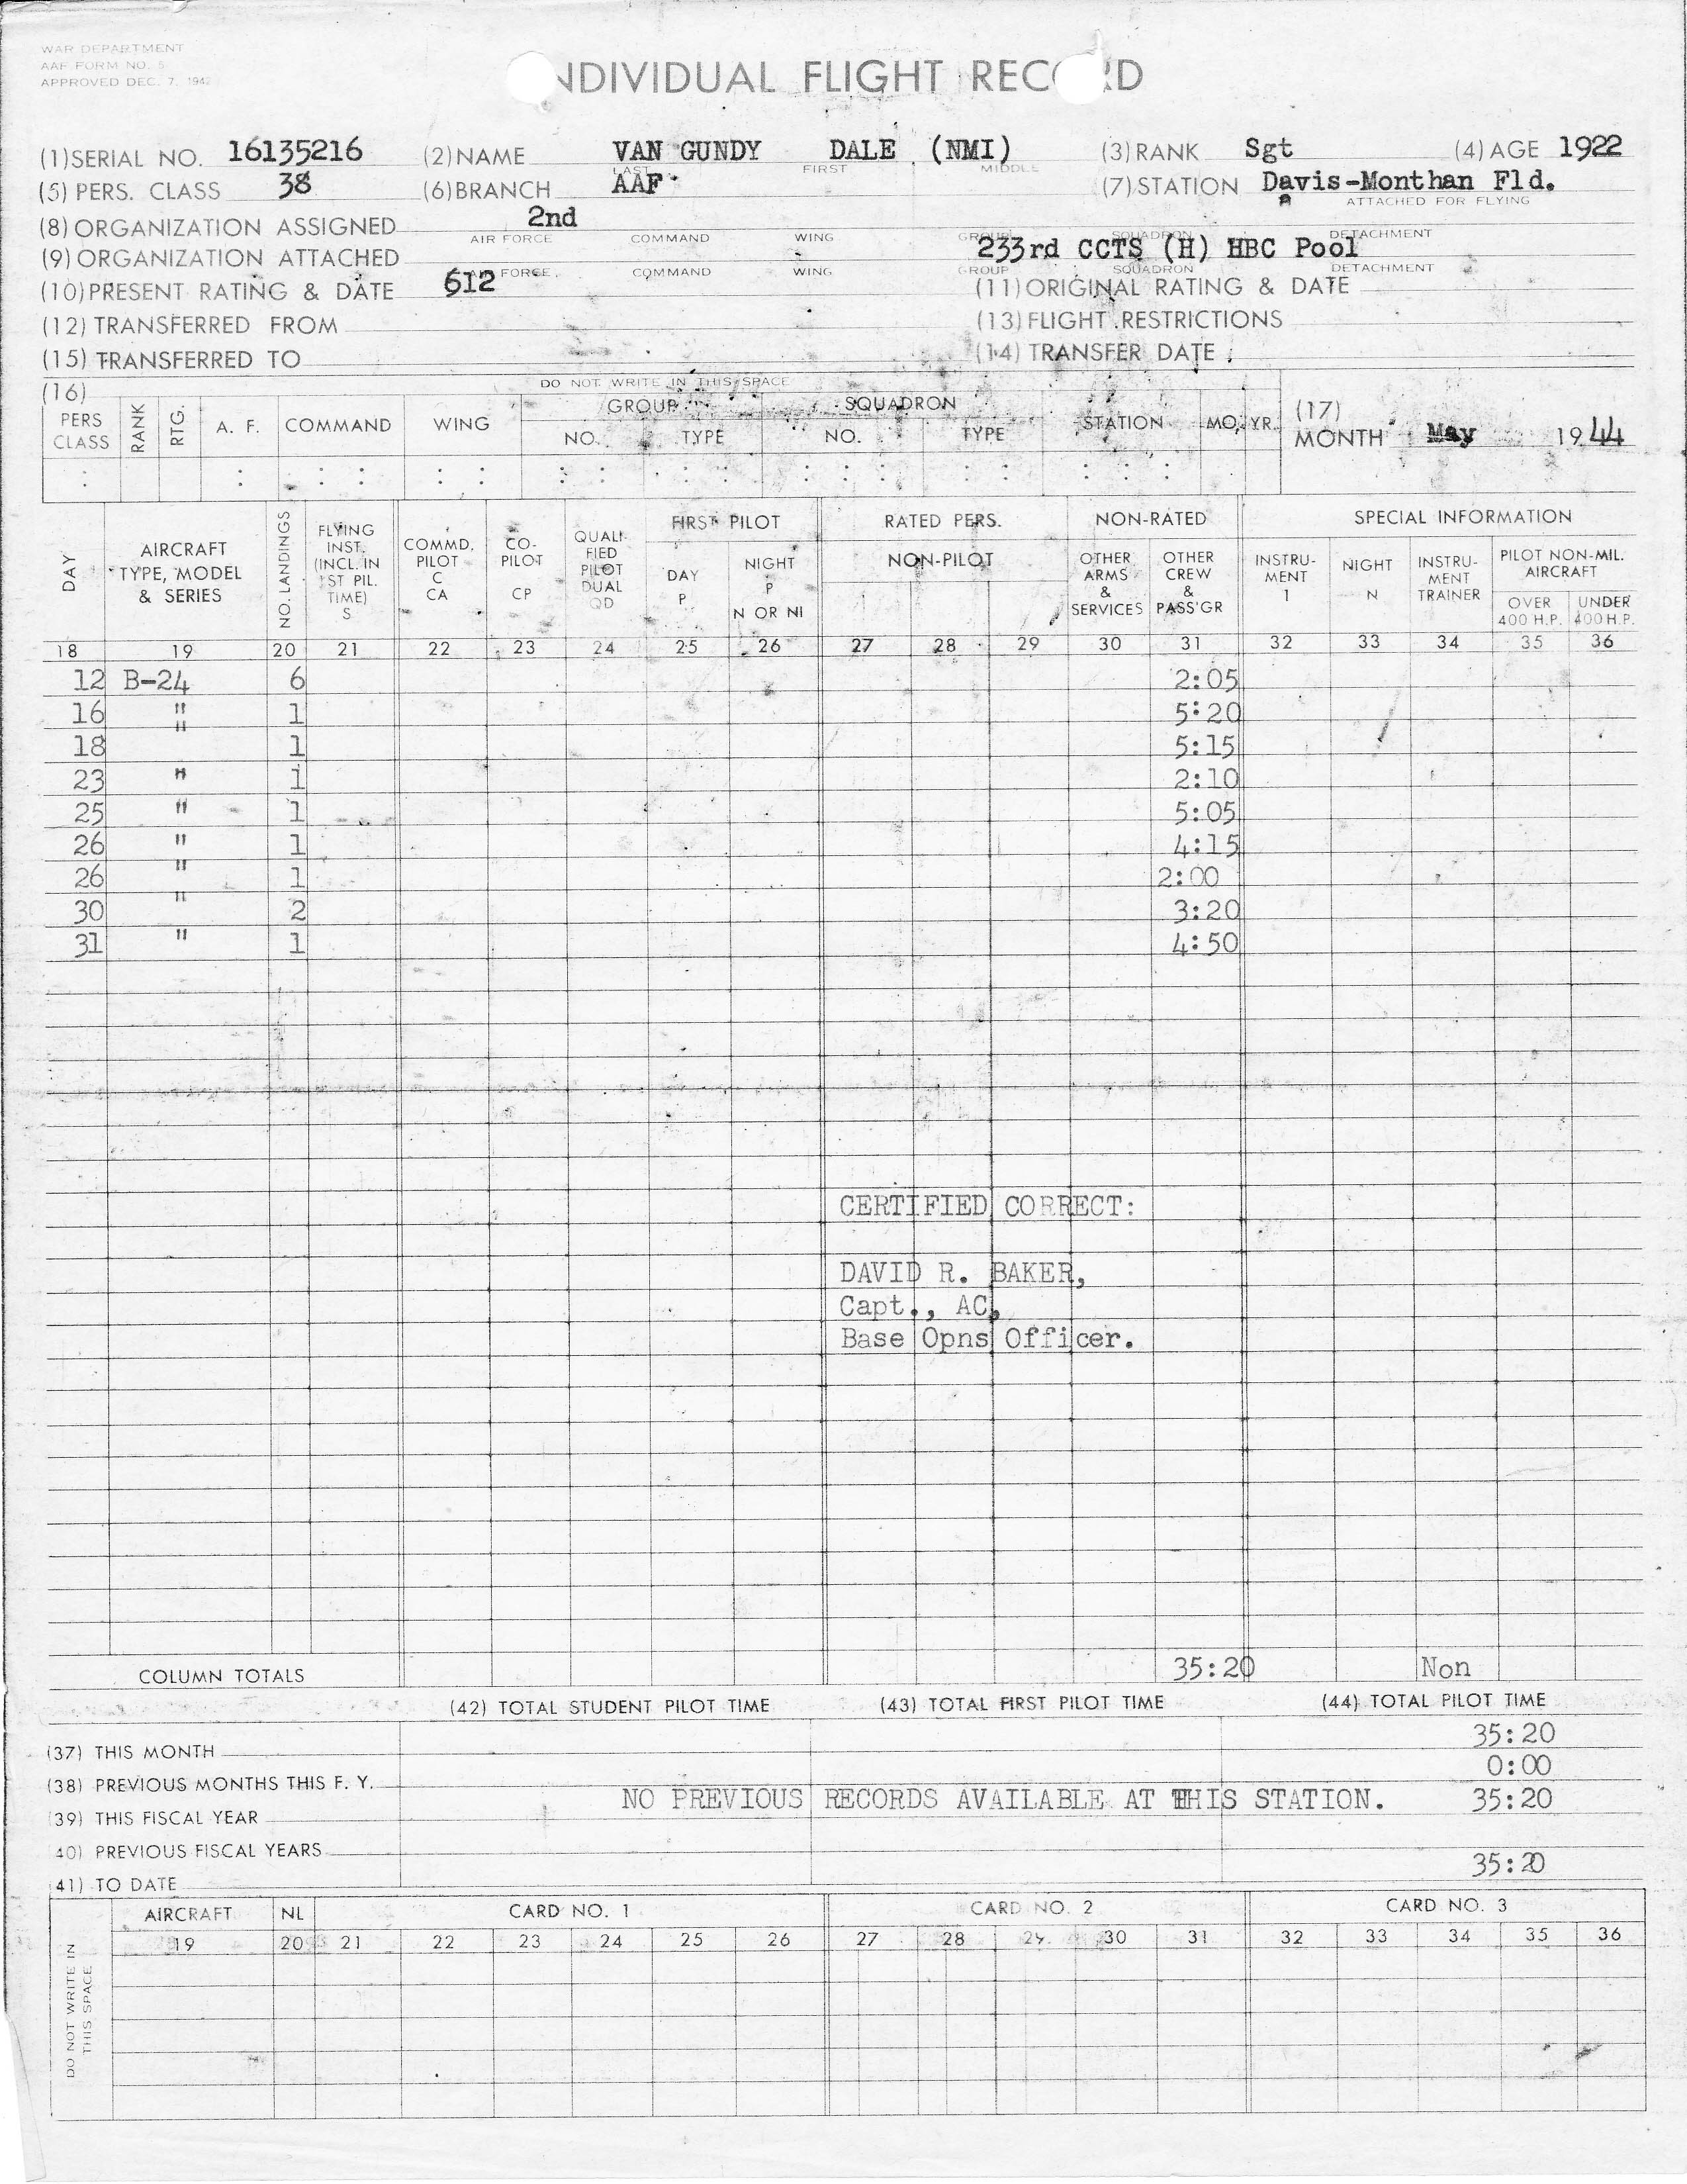 WAR DEPARTMENT
AAF FORM NO. 5
APPROVED DEC. 7, 1942
NDIVIDUAL FLIGHT REC RD
(1) SERIAL NO. 16135216 (2) NAME VAN GUNDY DALE (NMI) (3) RANK Sgt (4) AGE 1922
LAST FIRST MIDDLE
(5) PERS. CLASS 38 (6) BRANCH AAF (7) STATION Davis-Monthan Fld.
ATTACHED FOR FLYING
(8) ORGANIZATION ASSIGNED 2nd
AIR FORCE COMMAND WING GROUP SQUADRON DETACHMENT
(9) ORGANIZATION ATTACHED 233rd CCTS (H) HBC Pool
AIR FORCE COMMAND WING GROUP SQUADRON DETACHMENT
(10) PRESENT RATING & DATE 612 (11) ORIGINAL RATING & DATE
(12) TRANSFERRED FROM (13) FLIGHT RESTRICTIONS
(15) TRANSFERRED TO (14) TRANSFER DATE
(16) DO NOT WRITE IN THIS SPACE
PERS CLASS RANK RTG. A. F. COMMAND WING GROUP NO. TYPE SQUADRON NO. TYPE STATION MO. YR. (17) MONTH May 1944
DAY AIRCRAFT TYPE, MODEL & SERIES NO. LANDINGS FLYING INST. (INCL. IN 1ST PIL. TIME) S COMMD. PILOT C CA CO-PILOT CP QUALIFIED PILOT DUAL QD FIRST PILOT DAY P NIGHT P N OR NI RATED PERS. NON-PILOT NON-RATED OTHER ARMS & SERVICES OTHER CREW & PASS'GR SPECIAL INFORMATION INSTRUMENT I NIGHT N INSTRUMENT TRAINER PILOT NON-MIL. AIRCRAFT OVER 400 H.P. UNDER 400 H.P.
18 19 20 21 22 23 24 25 26 27 28 29 30 31 32 33 34 35 36
12 B-24 6 2:05
16 " 1 5:20
18 " 1 5:15
23 " 1 2:10
25 " 1 5:05
26 " 1 4:15
26 " 1 2:00
30 " 2 3:20
31 " 1 4:50
CERTIFIED CORRECT:
DAVID R. BAKER,
Capt., AC,
Base Opns Officer.
COLUMN TOTALS 35:20 Non
(42) TOTAL STUDENT PILOT TIME (43) TOTAL FIRST PILOT TIME (44) TOTAL PILOT TIME
(37) THIS MONTH 35:20
(38) PREVIOUS MONTHS THIS F. Y. 0:00
NO PREVIOUS RECORDS AVAILABLE AT THIS STATION.
(39) THIS FISCAL YEAR 35:20
(40) PREVIOUS FISCAL YEARS
(41) TO DATE 35:20
DO NOT WRITE IN THIS SPACE
AIRCRAFT NL CARD NO. 1 CARD NO. 2 CARD NO. 3
19 20 21 22 23 24 25 26 27 28 29 30 31 32 33 34 35 36